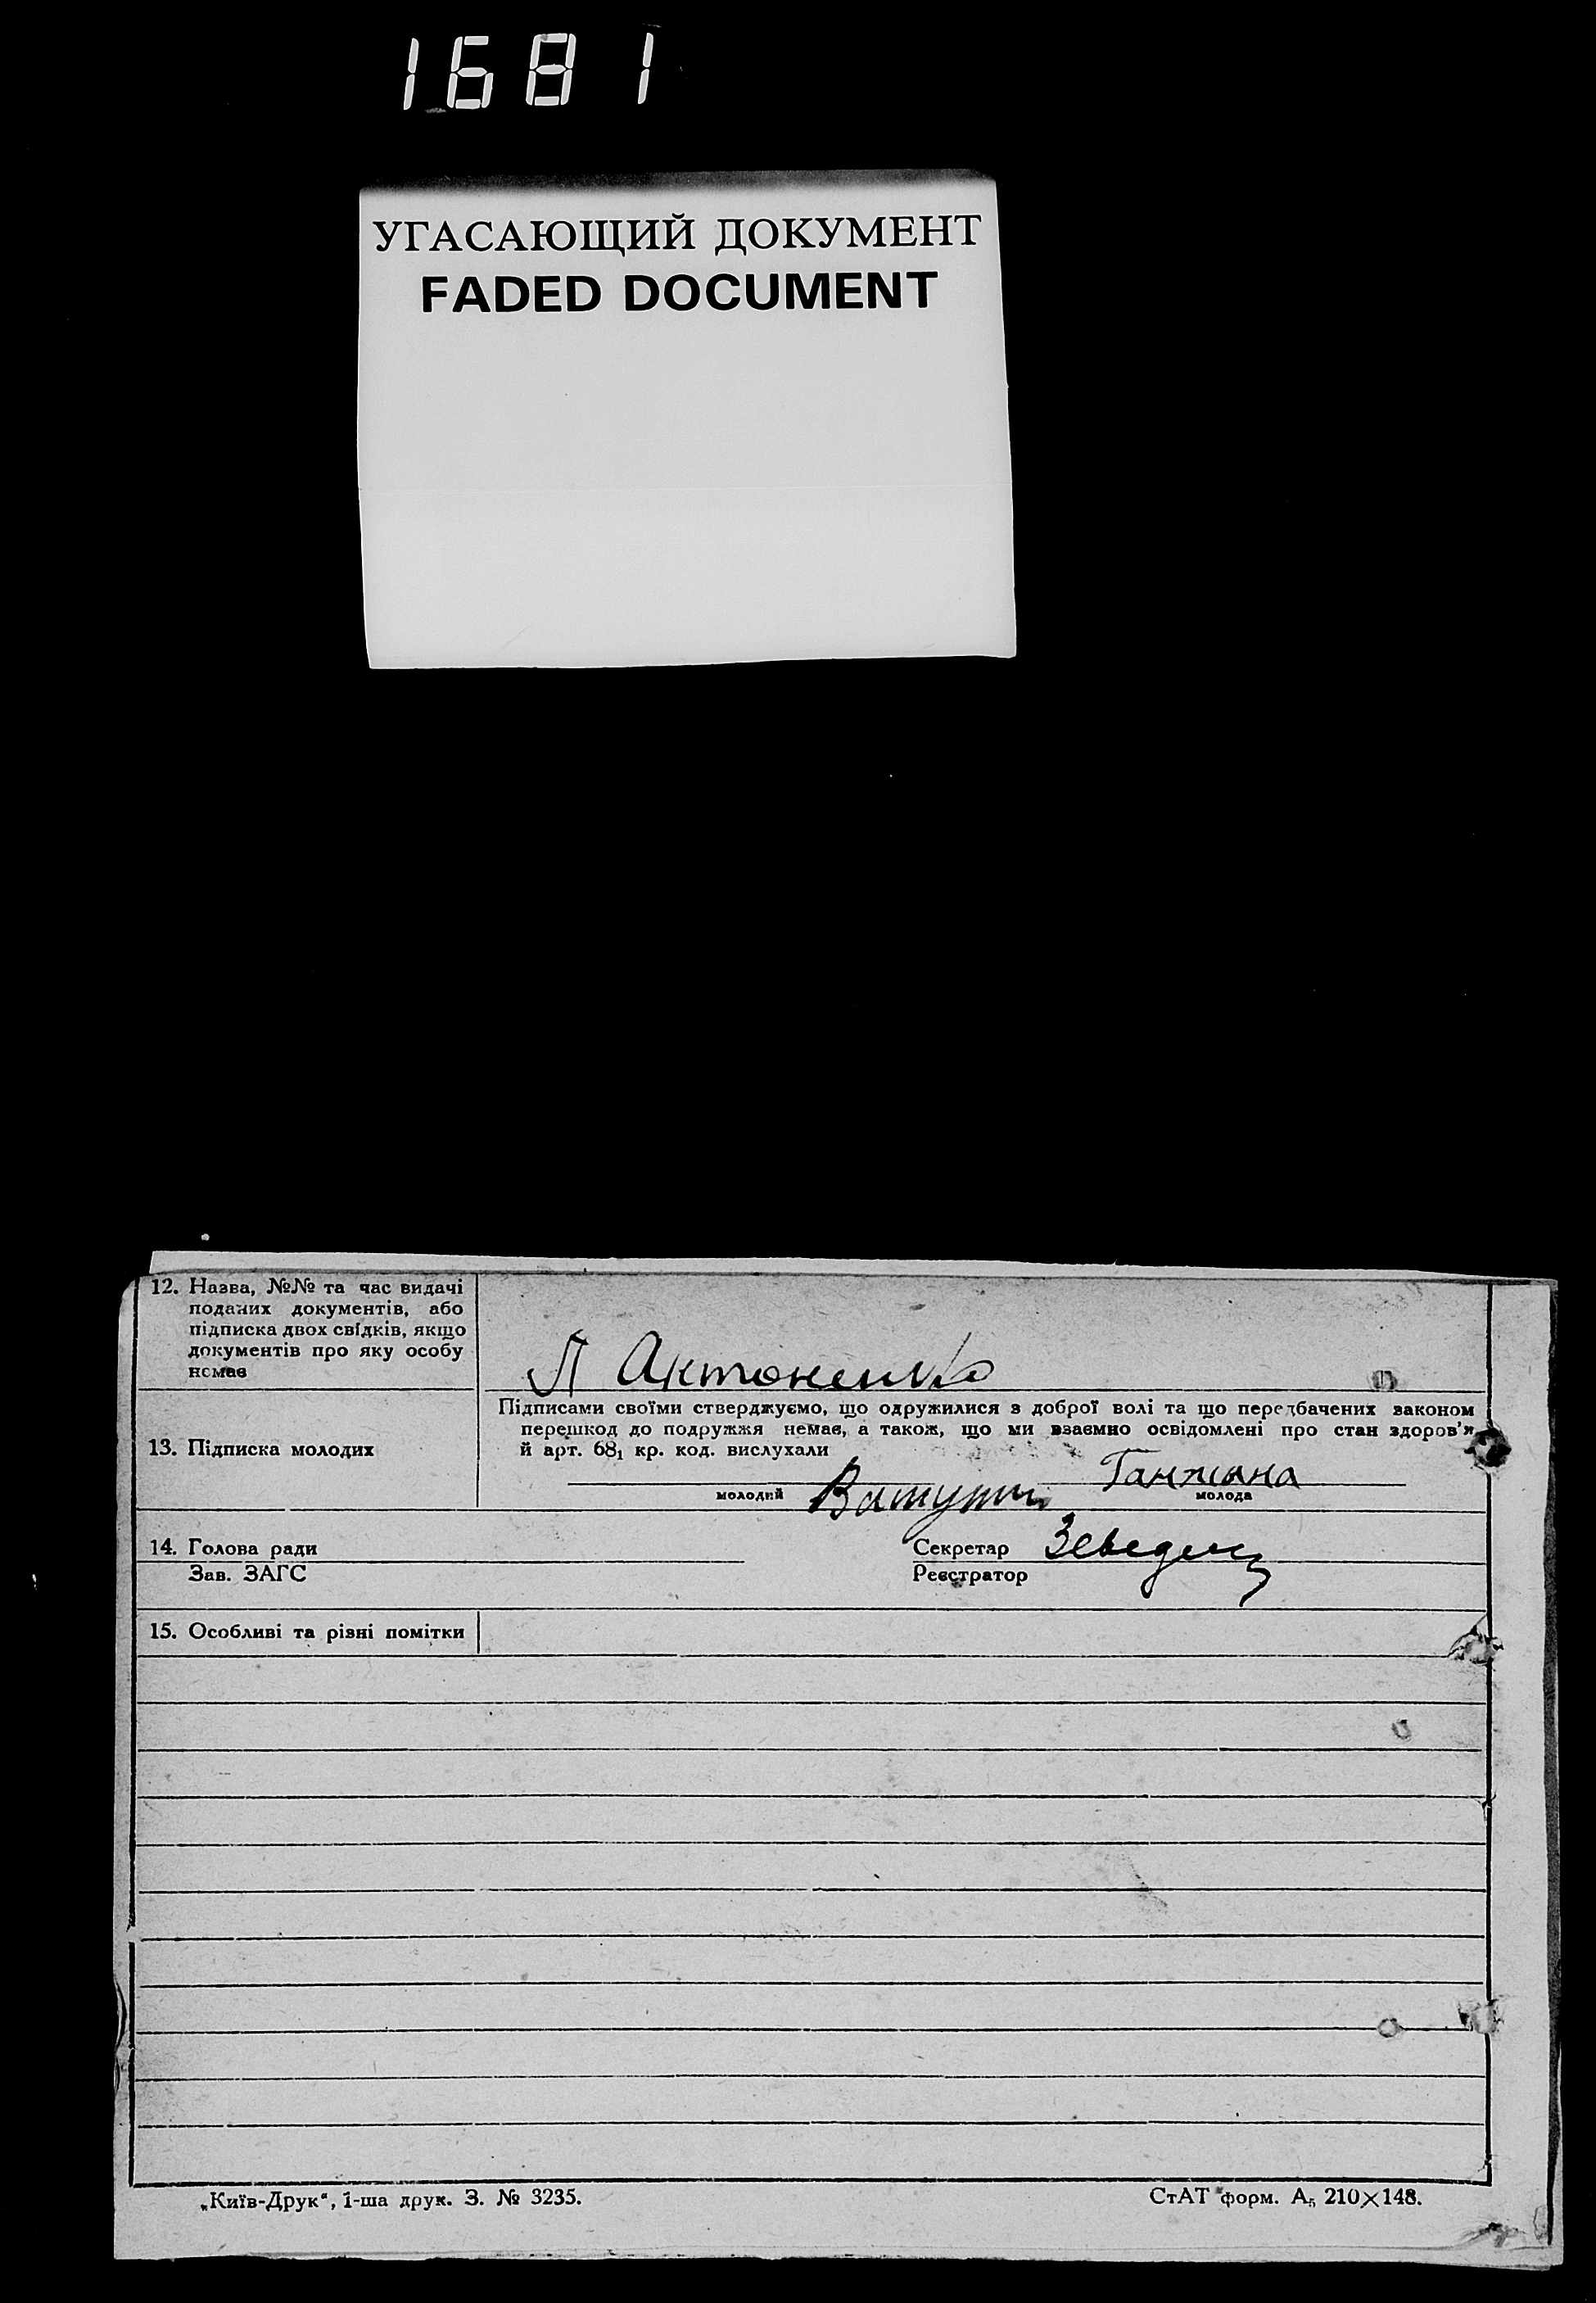 1681
УГАСАЮЩИЙ ДОКУМЕНТ
FADED DOCUMENT
12. Назва, №№ та час видачі
поданих документів, або
підписка двох свідків, якщо
документів про яку особу
немає
Л Антоненко
13. Підписка молодих
Підписами своїми стверджуємо, що одружилися з доброї волі та що передбачених законом
перешкод до подружжя немає, а також, що ми взаємно освідомлені про стан здоров'я
й арт. 68₁ кр. код. вислухали
молодий Ватутин
Ганжина
молода
14. Голова ради
Зав. ЗАГС
Секретар
Реєстратор
15. Особливі та різні помітки
„Київ-Друк“, 1-ша друк. З. № 3235.
СтАТ форм. А₅ 210×148.